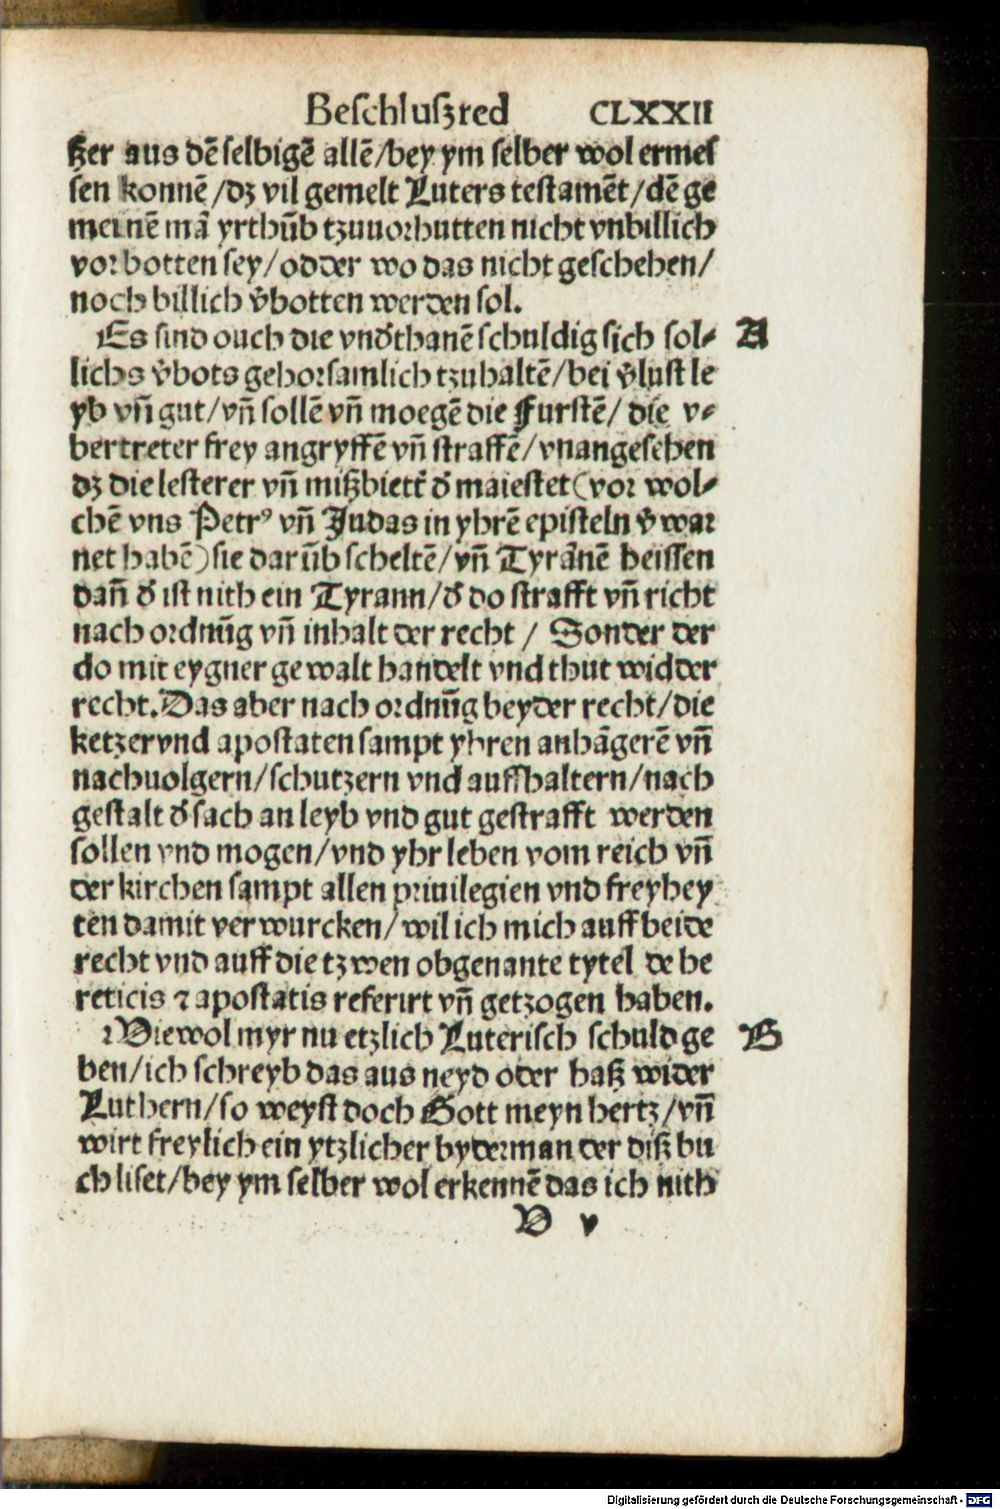 Beschluſzred CLXXII
ſzer aus dē ſelbigē allē/bey ym ſelber wol ermeſ
ſen konnē/dz vil gemelt Luters teſtamēt/dē ge
meinē mā yrthūb tzuuorhutten nicht vnbillich
vorbotten ſey/odder wo das nicht geſchehen/
noch billich v̄botten werden ſol.
Es ſind ouch die vnd̄thanē ſchuldig ſich ſol⸗ A
lichs v̄bots gehorſamlich tzuhaltē/bei v̄luſt le
yb vn̄ gut/vn̄ ſollē vn̄ moegē die Furſtē/die v⸗
bertreter frey angryffē vn̄ ſtraffē/vnangeſehen
dz die leſterer vn̄ miſzbietr̄ d̄ maieſtet(vor wol⸗
chē vns Petrꝰ vn̄ Judas in yhrē epiſteln v̄war
net habē)ſie darūb ſcheltē/vn̄ Tyrānē heiſſen
dan̄ d̄ iſt nith ein Tyrann/d̄ do ſtrafft vn̄ richt
nach ordnūg vn̄ inhalt der recht / Sonder der
do mit eygner gewalt handelt vnd thut widder
recht. Das aber nach ordnūg beyder recht/die
ketzer vnd apoſtaten ſampt yhren anhāgerē vn̄
nachuolgern/ſchutzern vnd auffhaltern/nach
geſtalt d̄ ſach an leyb vnd gut geſtrafft werden
ſollen vnd mogen/vnd yhr leben vom reich vn̄
der kirchen ſampt allen priuilegien vnd freyhey
ten damit verwurcken/wil ich mich auff beide
recht vnd auff die tzwen obgenante tytel de he
reticis ⁊ apoſtatis referirt vn̄ getzogen haben.
Wiewol myr nu etzlich Luteriſch ſchuld ge B
ben/ich ſchreyb das aus neyd oder haſz wider
Luthern/ſo weyſt doch Gott meyn hertz/vn̄
wirt freylich ein ytzlicher byderman der diſz bu
ch liſet/bey ym ſelber wol erkennē das ich nith
V v
Digitalisierung gefördert durch die Deutsche Forschungsgemeinschaft - DFG